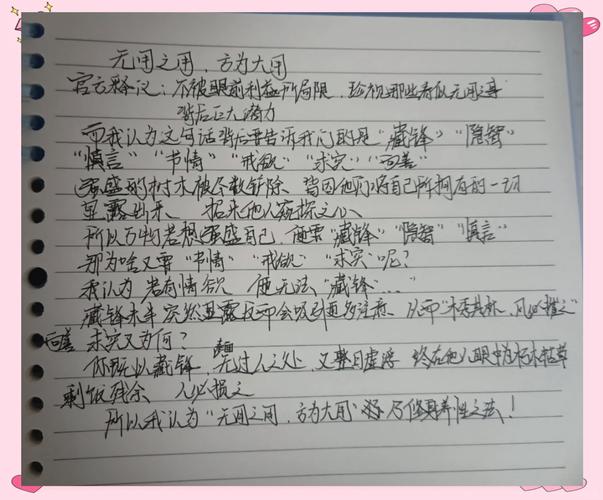 无用之用，方为大用
官方释议：不被眼前利益所局限，珍视那些看似无用之事
背后巨大潜力
而我认为这句话背后要告诉我们的是“藏锋”“隐智”
“慎言”“节情”“戒欲”“求实”“向善”
强盛的树木被尽数铲除、皆因他们将自己所拥有的一切
显露出来、招来他人窥探之心、
所以万物若想强盛自己，便要“藏锋”“隐智”“慎言”
那为啥又要“节情”“戒欲”“求实”呢？
我认为 若有情欲 便无法“藏锋……”
藏锋未半 突然显露 反而会吸引更多注意、从而“木秀其林，风必摧之”
向善 求实又为何？
你既以藏锋，无过人之处，又整日虚浮 终在他人眼中为朽木枯草
剩饭残余 人必损之
所以我认为“无用之用，方为大用” 乃修身养性之法！